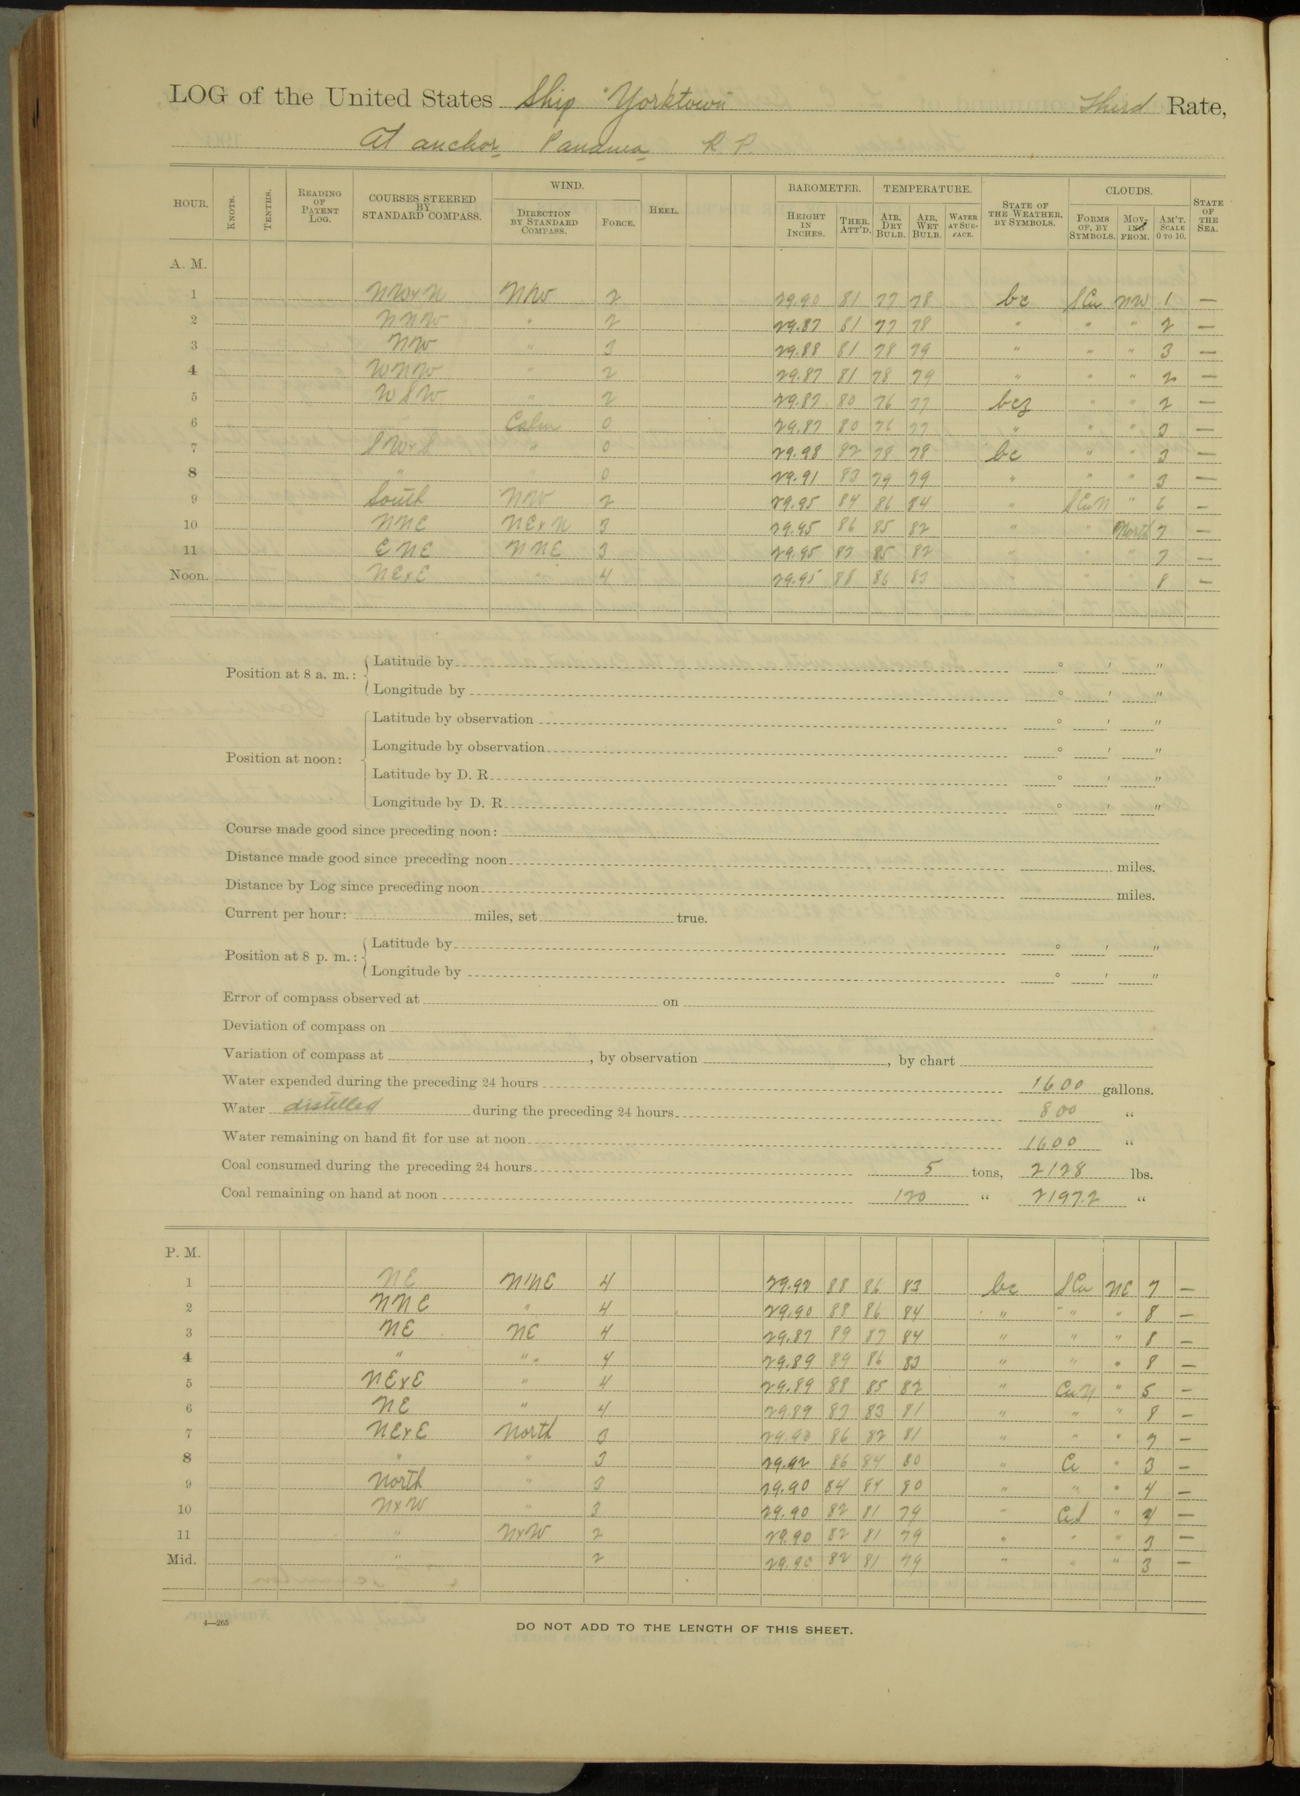 LOG of the United States Ship "Yorktown" Third Rate,
At anchor, Panama R. P.
HOUR. KNOTS. TENTHS. READING OF PATENT LOG. COURSES STEERED BY STANDARD COMPASS. WIND. DIRECTION BY STANDARD COMPASS. FORCE. HEEL. BAROMETER. HEIGHT IN INCHES. THER. ATT'D. TEMPERATURE. AIR, DRY BULB. AIR, WET BULB. WATER AT SURFACE. STATE OF THE WEATHER, BY SYMBOLS. CLOUDS. FORMS OF, BY SYMBOLS. MOVING FROM. AM'T. SCALE 0 TO 10. STATE OF THE SEA.
A. M.
1 NWxN NW 2 29.90 81 77 78 bc SCu NW 1 —
2 NNW " 2 29.87 81 77 78 " " " 2 —
3 NW " 3 29.88 81 78 79 " " " 3 —
4 WNW " 2 29.87 81 78 79 " " " 2 —
5 WSW " 2 29.87 80 76 77 bcz " " 2 —
6 " Calm 0 29.87 80 76 77 " " " 3 —
7 SWxS " 0 29.98 82 78 78 bc " " 3 —
8 " " 0 29.91 83 79 79 " " " 3 —
9 South NW 2 29.95 84 86 84 " SCuN " 6 —
10 NNE NExN 3 29.95 86 85 82 " " North 7 —
11 ENE NNE 3 29.95 87 85 82 " " " 7 —
Noon. NExE " 4 29.95 88 86 83 " " " 8 —
Position at 8 a. m.: Latitude by ° ' "
Longitude by ° ' "
Position at noon: Latitude by observation ° ' "
Longitude by observation ° ' "
Latitude by D. R. ° ' "
Longitude by D. R. ° ' "
Course made good since preceding noon:
Distance made good since preceding noon miles.
Distance by Log since preceding noon miles.
Current per hour: miles, set true.
Position at 8 p. m.: Latitude by ° ' "
Longitude by ° ' "
Error of compass observed at on
Deviation of compass on
Variation of compass at , by observation , by chart
Water expended during the preceding 24 hours 1600 gallons.
Water distilled during the preceding 24 hours 800 "
Water remaining on hand fit for use at noon 1600 "
Coal consumed during the preceding 24 hours 5 tons, 2128 lbs.
Coal remaining on hand at noon 120 " 2197.2 "
P. M.
1 NE NNE 4 29.92 88 86 83 bc SCu NE 7 —
2 NNE " 4 29.90 88 86 84 " " " 8 —
3 NE NE 4 29.87 89 87 84 " " " 8 —
4 " " 4 29.89 89 86 83 " " " 8 —
5 NExE " 4 29.89 88 85 82 " CuN " 5 —
6 NE " 4 29.89 87 83 81 " " " 8 —
7 NExE North 3 29.90 86 82 81 " " " 7 —
8 " " 3 29.92 86 84 80 " " 3 —
9 North " 3 29.90 84 84 80 " " " 4 —
10 NxW " 3 29.90 82 81 79 " " —
11 " NxW 2 29.90 82 81 79 " " " 3 —
Mid. " 2 29.90 82 81 79 " " " 3 —
4—265
DO NOT ADD TO THE LENGTH OF THIS SHEET.